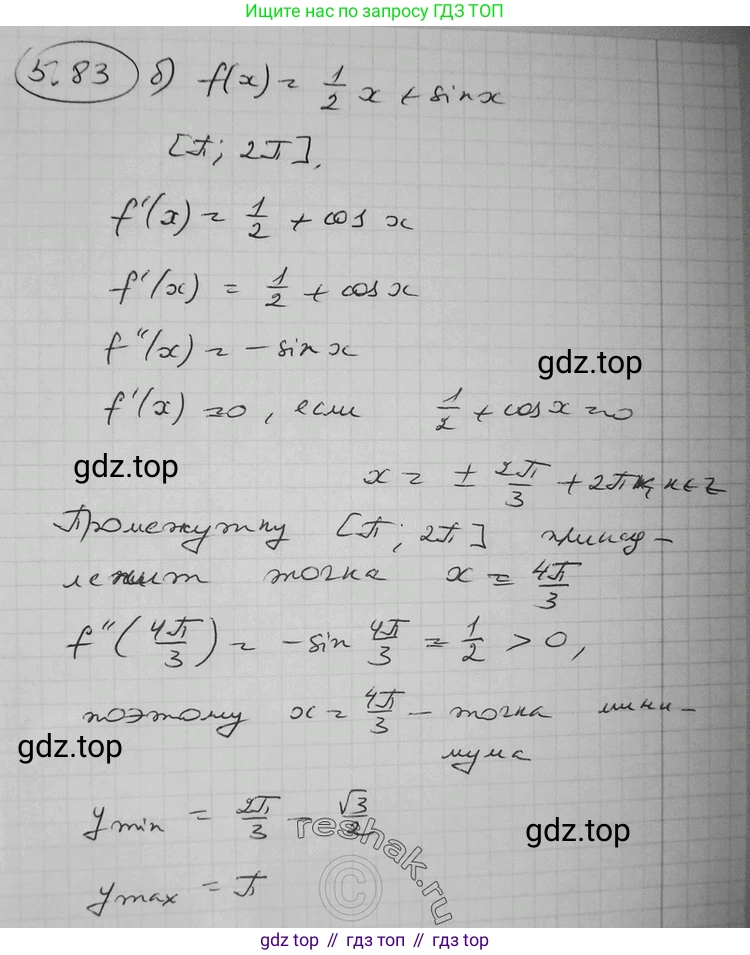 Ищите нас по запросу ГДЗ ТОП
5.83 б) f(x) = 1/2 x + sin x
[π; 2π].
f'(x) = 1/2 + cos x
f'(x) = 1/2 + cos x
f''(x) = - sin x
gdz.top
f'(x) = 0, если 1/2 + cos x = 0
gdz.top
x = ± 2π/3 + 2πk, k ∈ Z
Промежутку [π; 2π] принад-
лежит точка x = 4π/3
f''(4π/3) = - sin 4π/3 = 1/2 > 0,
поэтому x = 4π/3 - точка мини-
gdz.top
мума
y min = 2π/3 - √3/2
gdz.top
reshak.ru
©
y max = π
gdz top // гдз топ // gdz top